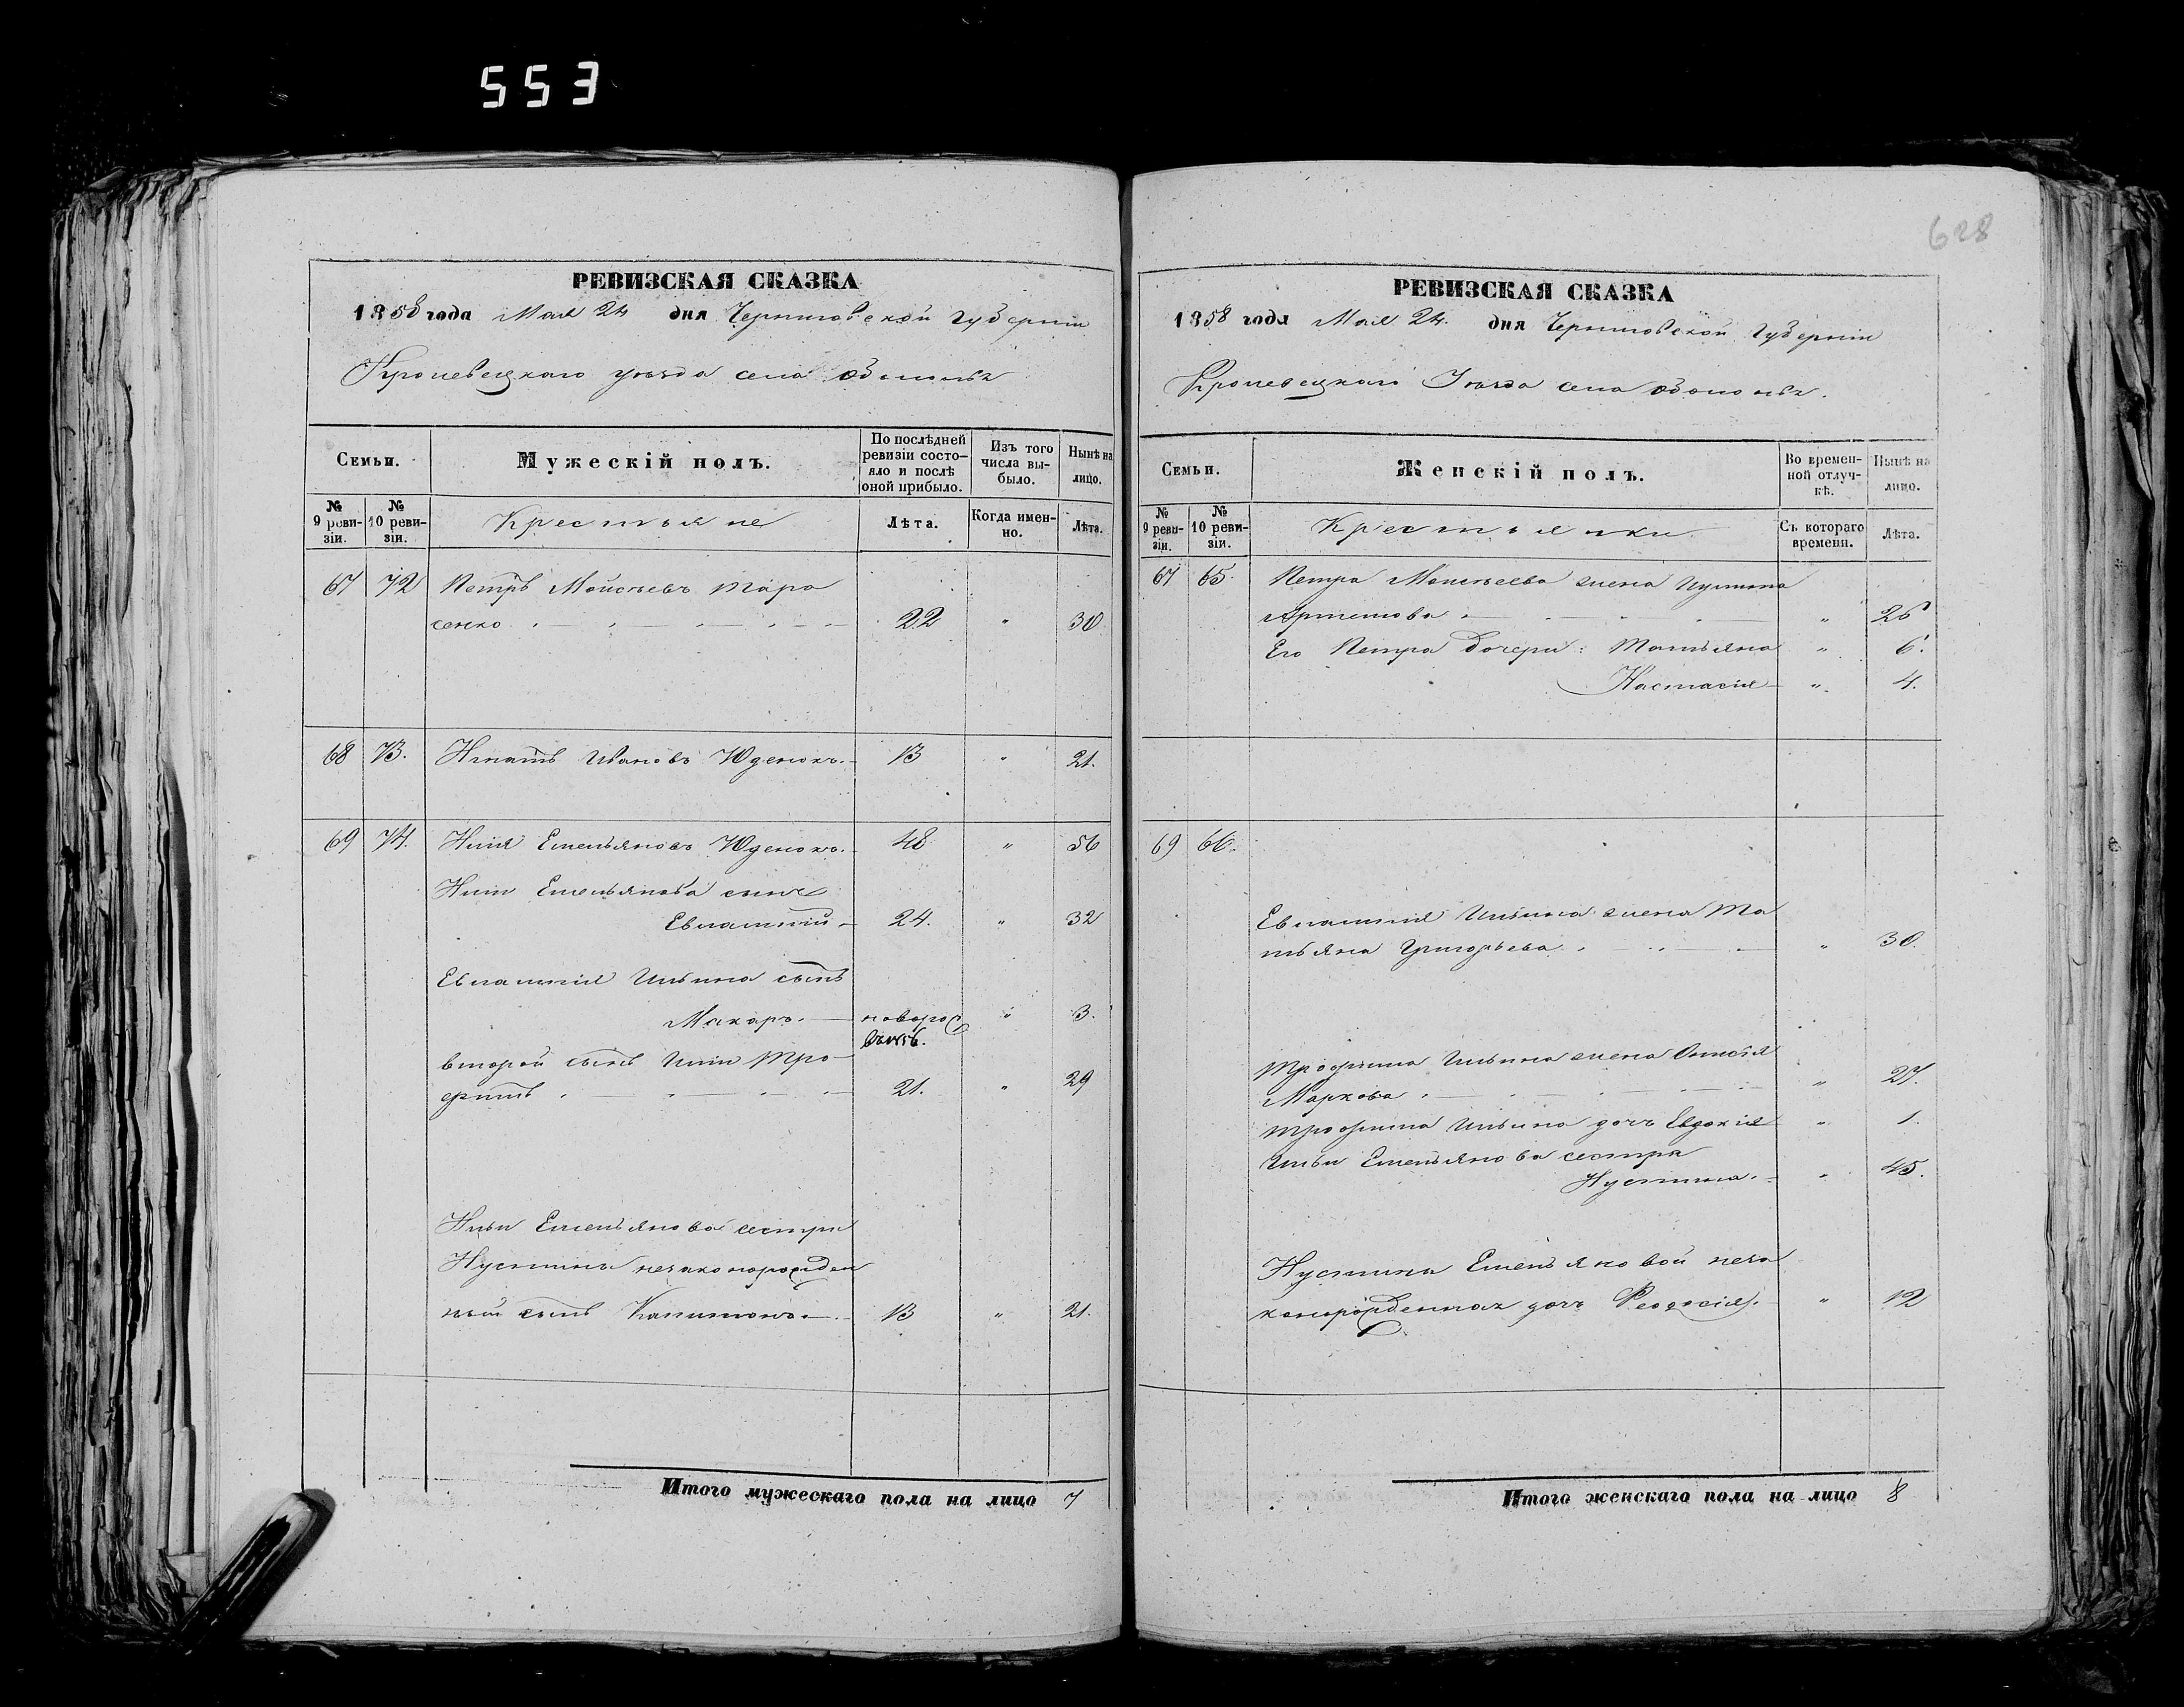 553
628
РЕВИЗСКАЯ СКАЗКА
1858 года Мая 24 дня Черниговской Губерніи
Кролевецкаго уѣзда села
Семьи.
Мужескій полъ.
По послѣдней ревизіи состо-
яло и послѣ
оной прибыло.
Изъ того
числа вы-
было.
Нынѣ на
лицо.
№
9 реви-
зіи.
№
10 реви-
зіи.
Крестьяне
Лѣта.
Когда имен-
но.
Лѣта.
67 72 Петръ Мойсѣевъ Тара
сенко 22 " 30
68 73. Игнатъ Ивановъ Юденокъ. 13 " 21.
69 74. Илія Емельяновъ Юденокъ. 48 " 56
Иліи Емельянова сынъ
Евлампій 24. " 32
Евлампія Ильина сынъ
Макаръ. новорож " 3.
второй сынъ Иліи Тро-
фимъ 21. " 29
Ильи Емельянова сестры
Иустины незаконорожден
ный сынъ Капитонъ. 13 " 21.
Итого мужескаго пола на лицо 7
РЕВИЗСКАЯ СКАЗКА
1858 года Мая 24. дня Черниговской Губерніи
Кролевецкаго Уѣзда села
Семьи.
Женскій полъ.
Во времен-
ной отлуч-
кѣ.
Нынѣ на
лицо.
№
9 реви-
зіи.
№
10 реви-
зіи.
Крестьянки
Съ котораго
времени.
Лѣта.
67 65. Петра Моисѣева жена
Артемова " 26
Его Петра дочери: Татьяна " 6.
Настасія " 4.
69 66.
Евлампія Ильина жена Та
тьяна Григорьева " 30.
Трофима Ильина жена
Маркова " 27.
Трофима Ильина дочь Евдокія " 1.
Ильи Емельянова сестра
Иустина. " 45.
Иустины Емельяновой неза
конорожденная дочь Феодосія. " 12
Итого женскаго пола на лицо 8